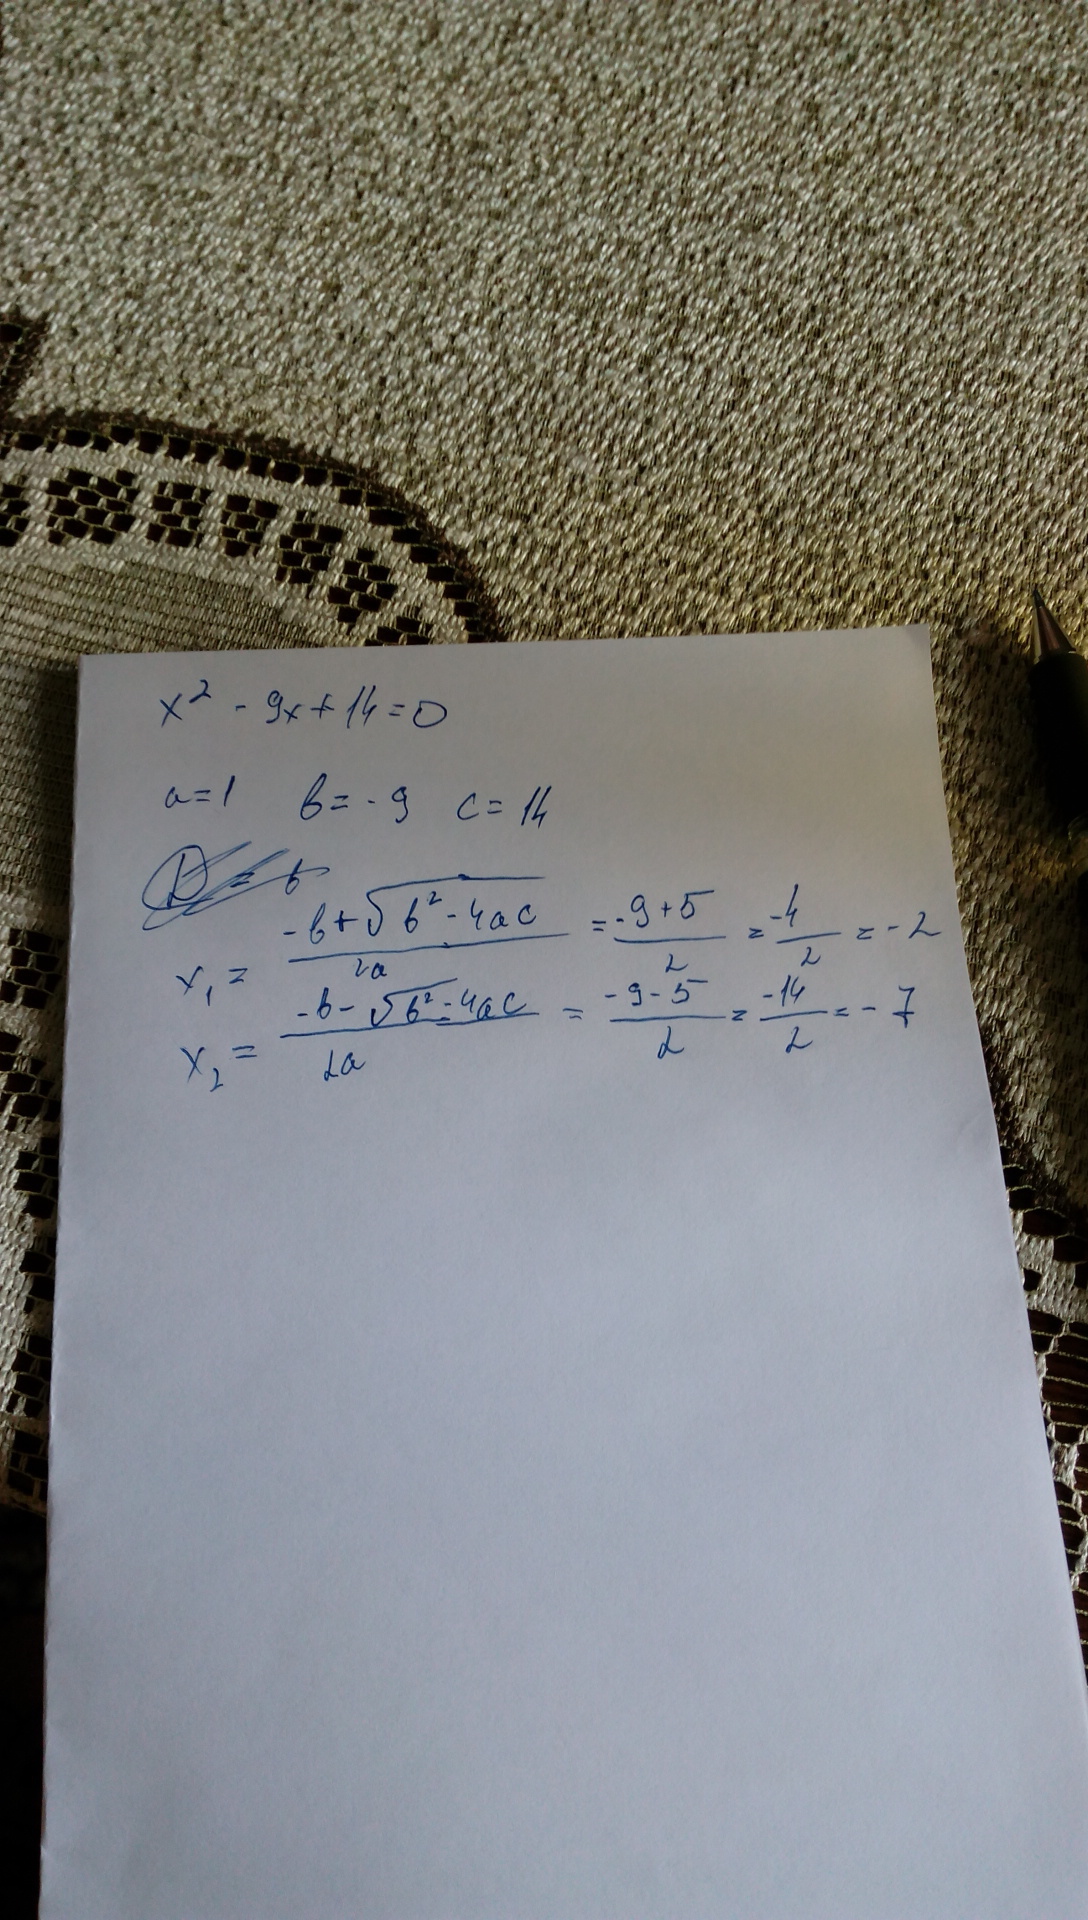 x² - 9x + 14 = 0
a = 1 b = -9 c = 14
D = b
x₁ = (-b + √(b² - 4ac))/2a = (-9 + 5)/2 = -4/2 = -2
x₂ = (-b - √(b² - 4ac))/2a = (-9 - 5)/2 = -14/2 = -7